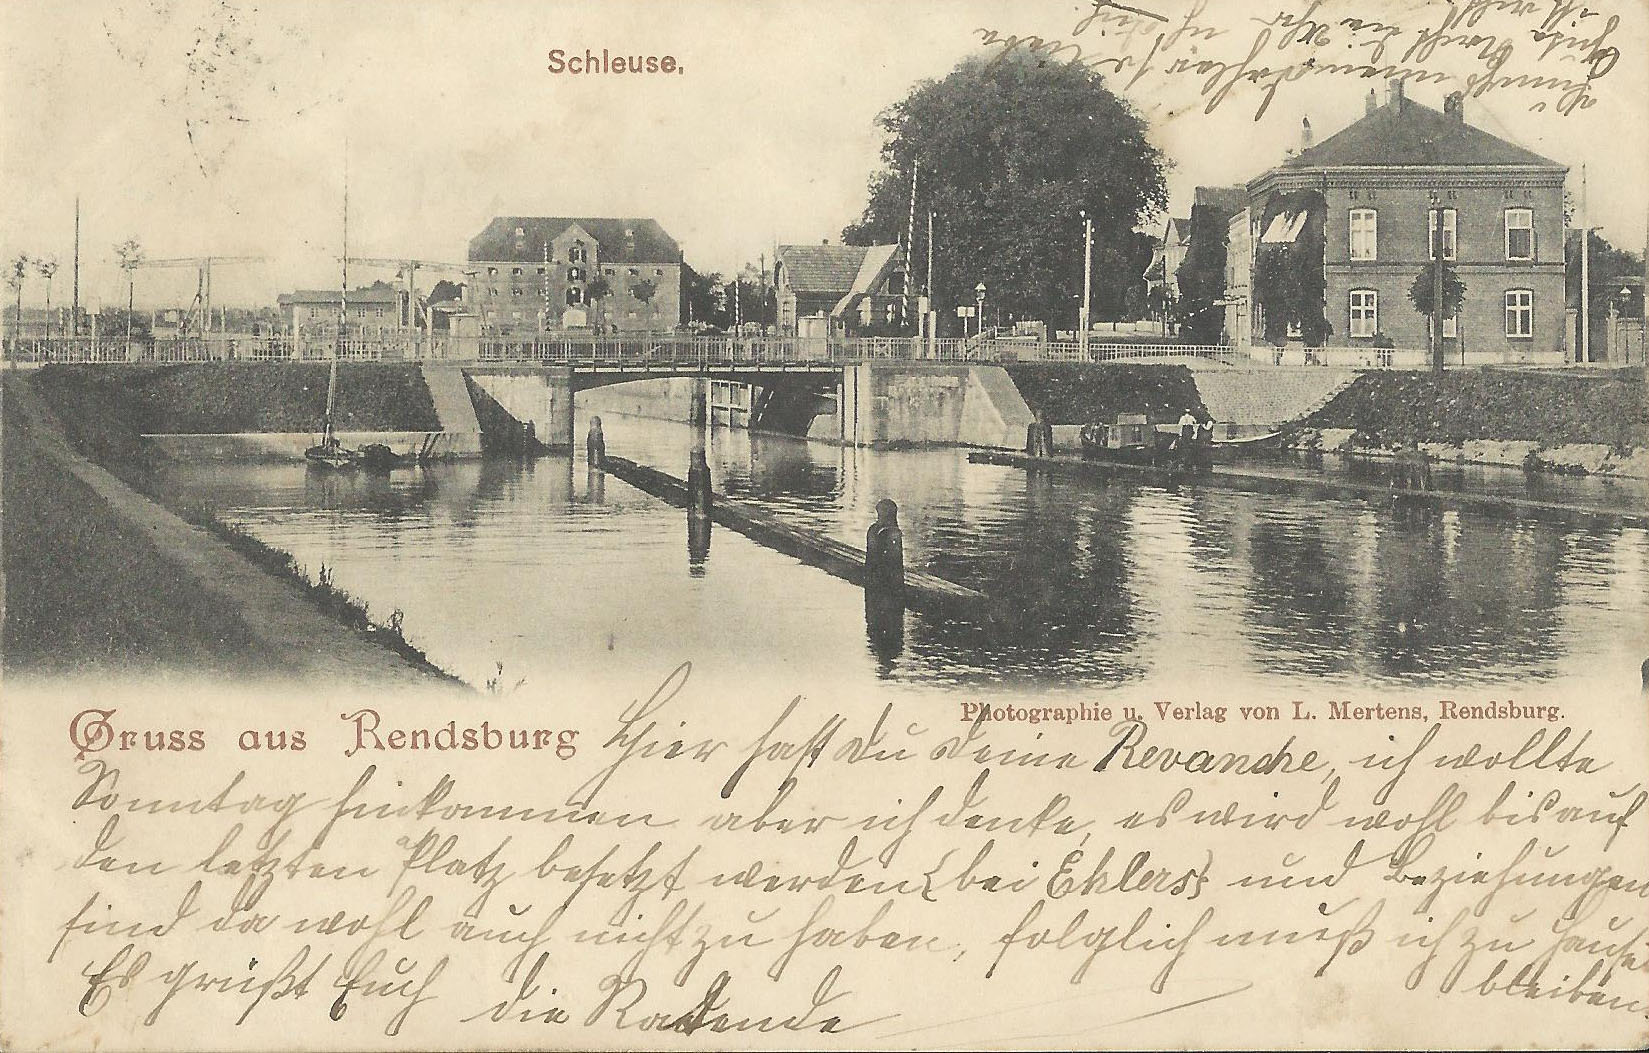 Schleuse,
Photographie u. Verlag von L. Mertens, Rendsburg.
Gruss aus Rendsburg Hier hast Du Deine Revanche, ich wollte
Sonntag hinkommen aber ich denke, es wird wohl bis auf
den letzten Platz besetzt werden (bei Ehlers) und Beziehungen
sind da wohl auch nicht zu haben, folglich muß ich zu Hause
bleiben.
Es grüßt Euch die